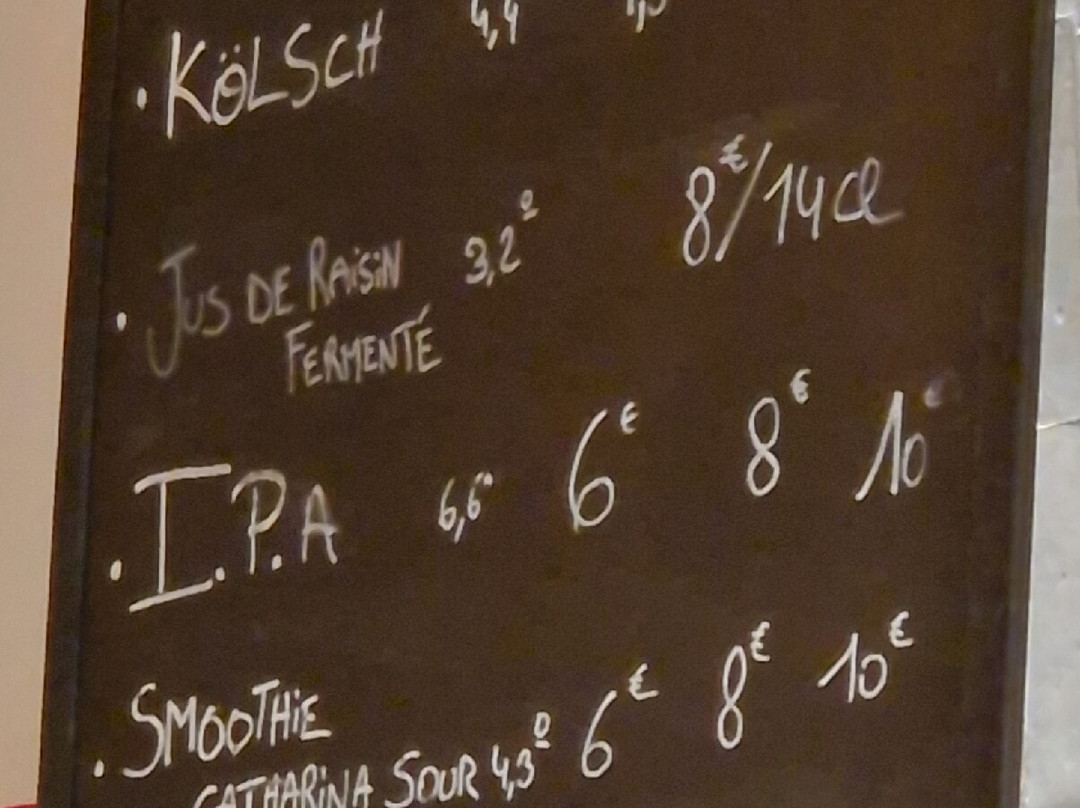 · KÖLSCH 4,4
· JUS DE RAiSiN 3,2º 8€/14cl
FERMENTÉ
· I.P.A 6,6° 6€ 8€ 10€
SMOOTHiE
· CATHARiNA SOUR 4,3º 6€ 8€ 10€